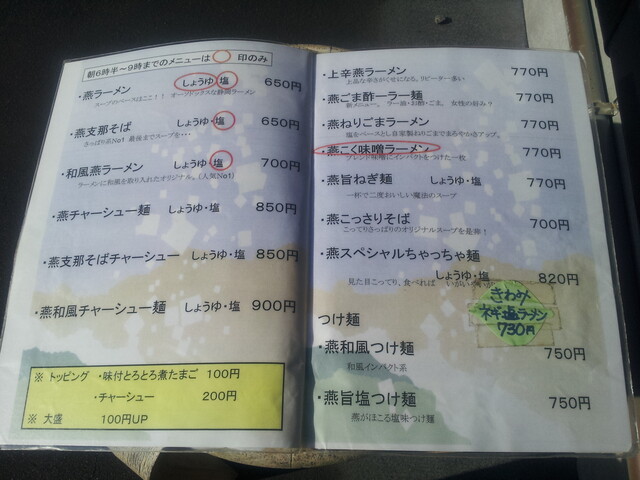 朝6時半～9時までのメニューは○印のみ
・燕ラーメン しょうゆ・塩 650円
スープのベースはここ！！ オーソドックスな静岡ラーメン
・燕支那そば しょうゆ・塩 650円
さっぱり系No1 最後までスープを・・・
・和風燕ラーメン しょうゆ・塩 700円
ラーメンに和風を取り入れたオリジナル。(人気No1)
・燕チャーシュー麺 しょうゆ・塩 850円
・燕支那そばチャーシュー しょうゆ・塩 850円
・燕和風チャーシュー麺 しょうゆ・塩 900円
※ トッピング ・味付とろとろ煮たまご 100円
・チャーシュー 200円
※ 大盛 100円UP
・上辛燕ラーメン 770円
上品な辛さがくせになる。リピーター多い
・燕ごま酢一ラー麺 770円
新メニュー。 ラー油・お酢・ごま。 女性の好み？
・燕ねりごまラーメン 770円
塩をベースとし自家製ねりごまでまろやかさアップ。
・燕こく味噌ラーメン 770円
ブレンド味噌にインパクトをつけた一枚
・燕旨ねぎ麺 しょうゆ・塩 770円
一杯で二度おいしい魔法のスープ
・燕こっさりそば 700円
こってりさっぱりのオリジナルスープを是非！
・燕スペシャルちゃっちゃ麺
しょうゆ・塩 820円
見た目こってり、食べれば
ネギ塩ラーメン
730円
つけ麺
・燕和風つけ麺 750円
和風インパクト系
・燕旨塩つけ麺 750円
燕がほこる塩味つけ麺